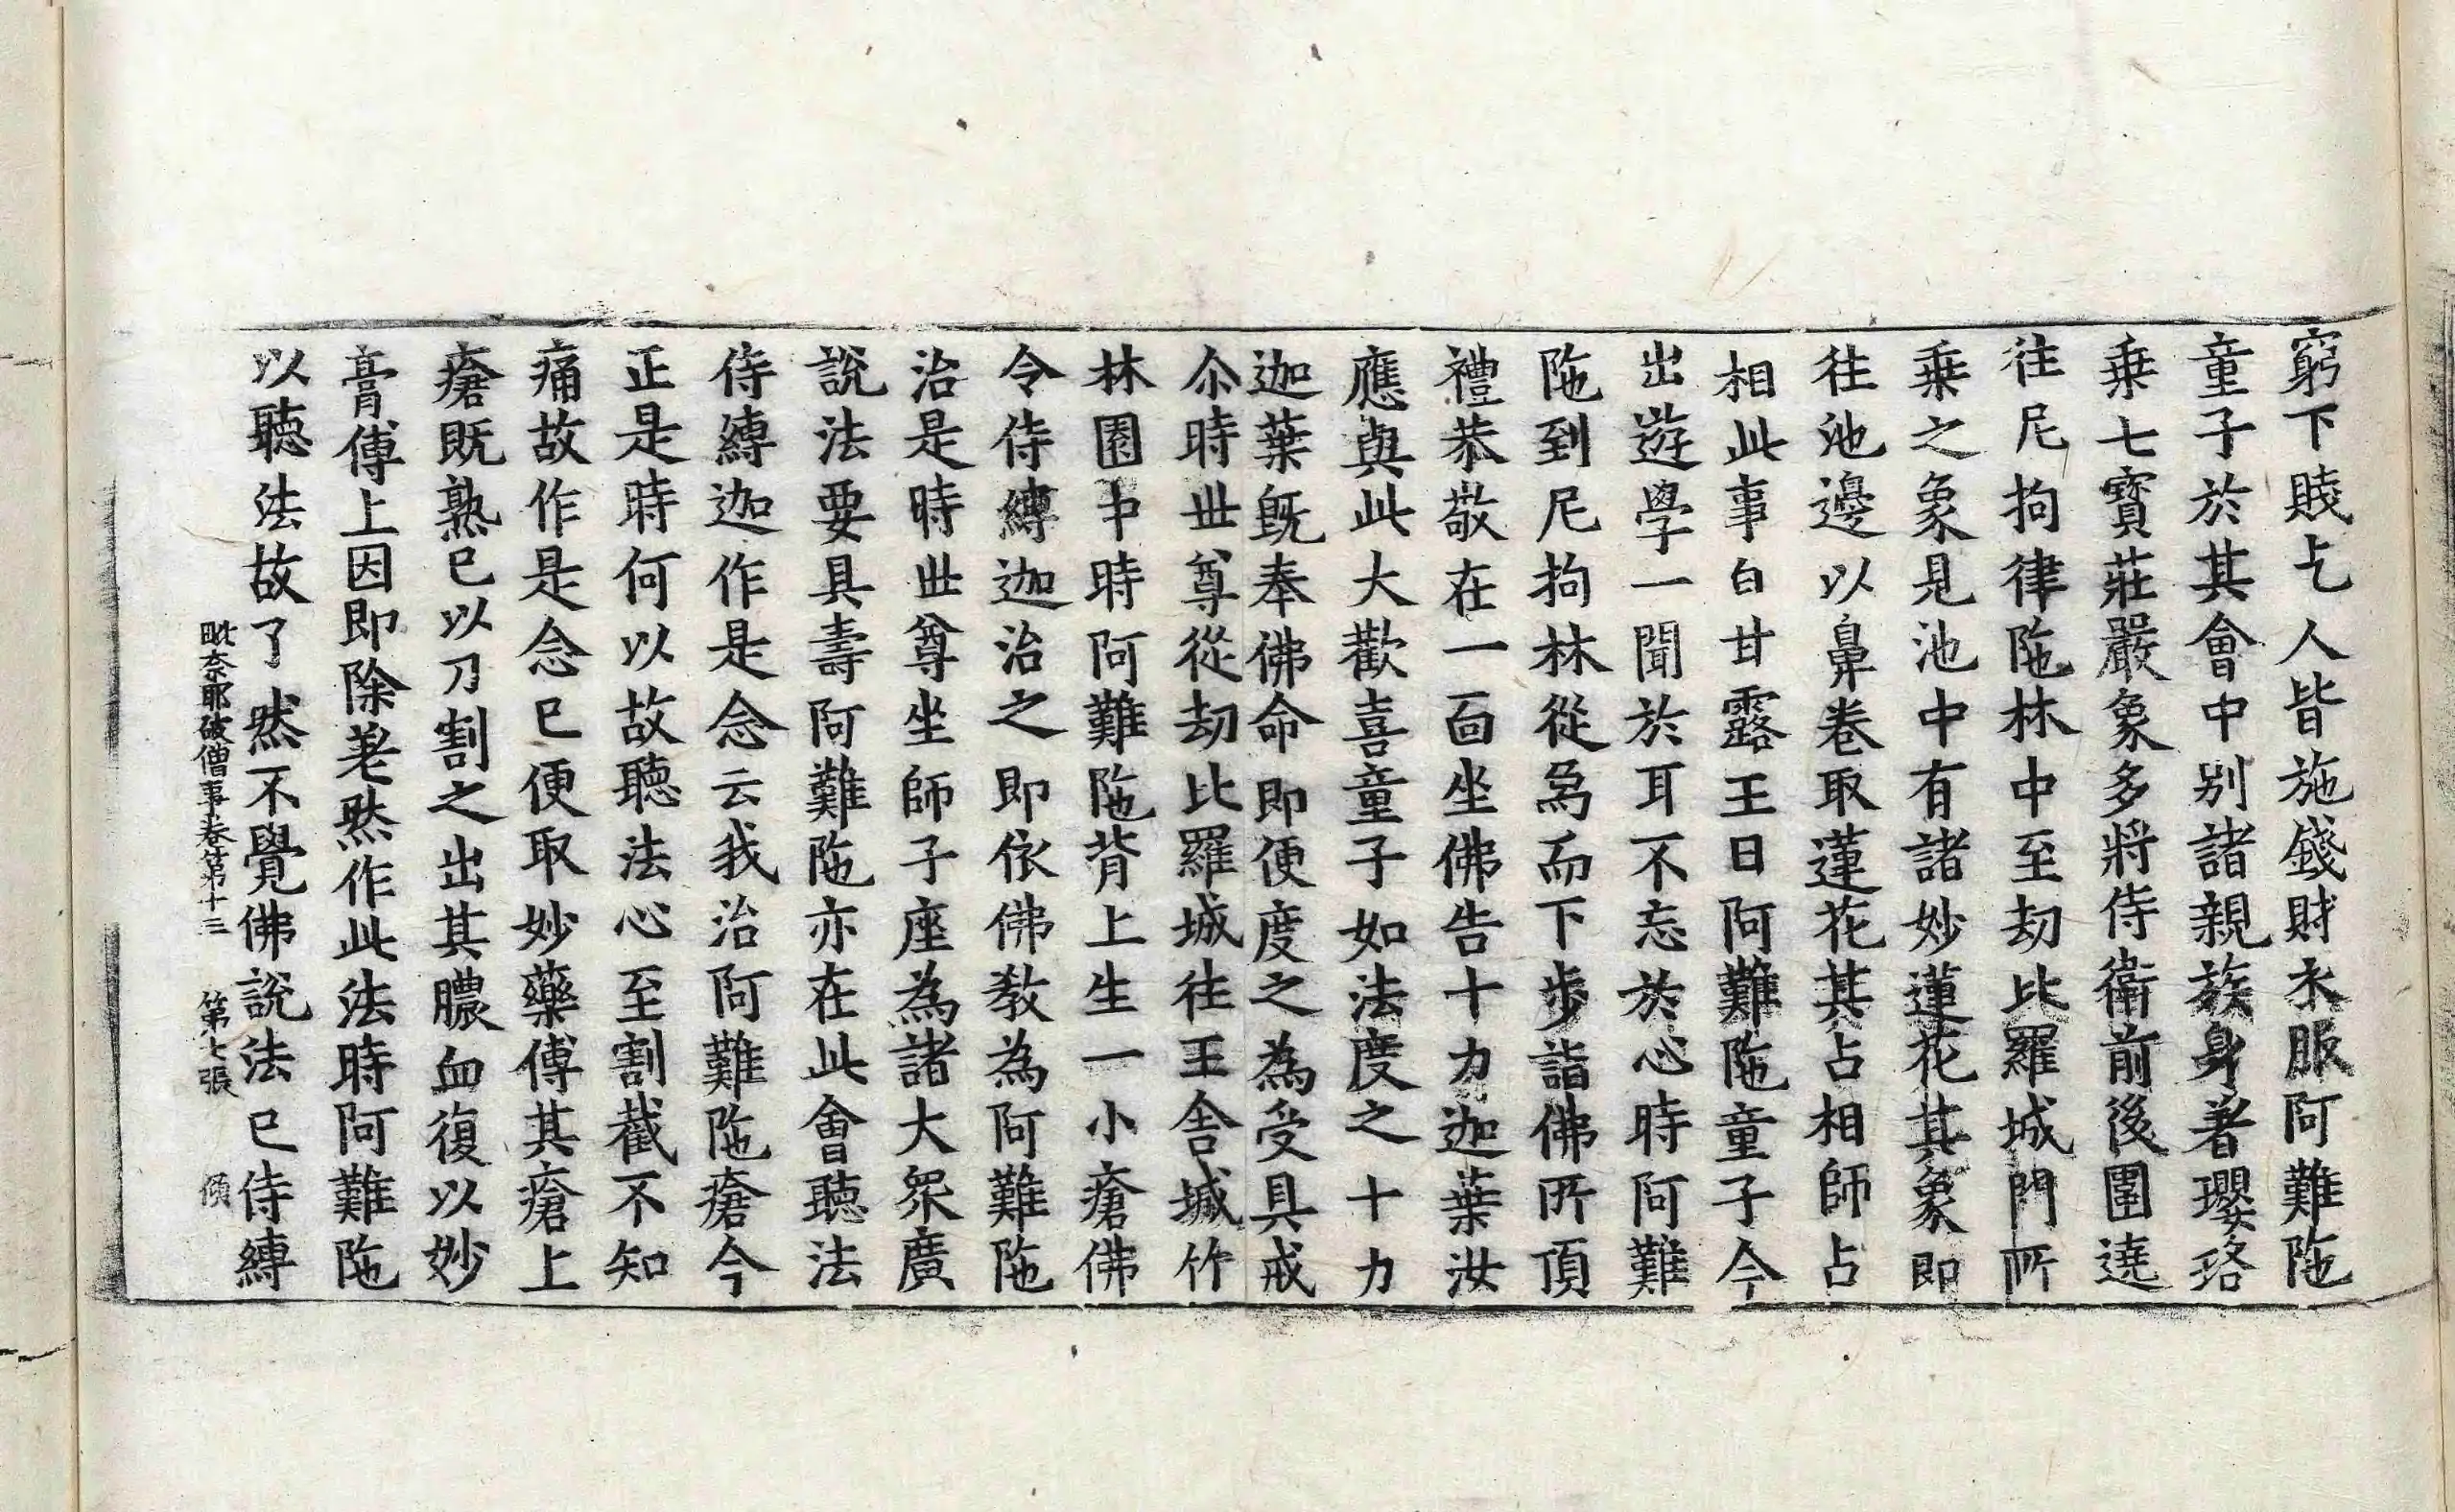 窮下賤乞人皆施錢財衣服阿難陁
童子於其會中别諸親族身著瓔珞
乗七寳莊嚴象多將侍衛前後圍遶
往尼拘律陁林中至劫比羅城門所
乗之象見池中有諸妙蓮花其象即
往池邊以鼻卷取蓮花其占相師占
相此事白甘露王曰阿難陁童子今
出遊學一聞於耳不忘於心時阿難
陁到尼拘林從爲而下步詣佛所頂
禮恭敬在一面坐佛告十力迦葉汝
應與此大歡喜童子如法度之十力
迦葉旣奉佛命即便度之為受具戒
尒時世尊從劫比羅城往王舍城竹
林園中時阿難陁背上生一小瘡佛
令侍縛迦治之即依佛教為阿難陁
治是時世尊坐師子座為諸大衆廣
說法要具壽阿難陁亦在此會聽法
侍縛迦作是念云我治阿難陁瘡今
正是時何以故聽法心至割截不知
痛故作是念已便取妙藥傅其瘡上
瘡既熟已以刀割之出其膿血復以妙
膏傅上因即除差然作此法時阿難陁
以聽法故了然不覺佛說法已侍縛
毗奈耶破僧事卷第十三 第七張 傾